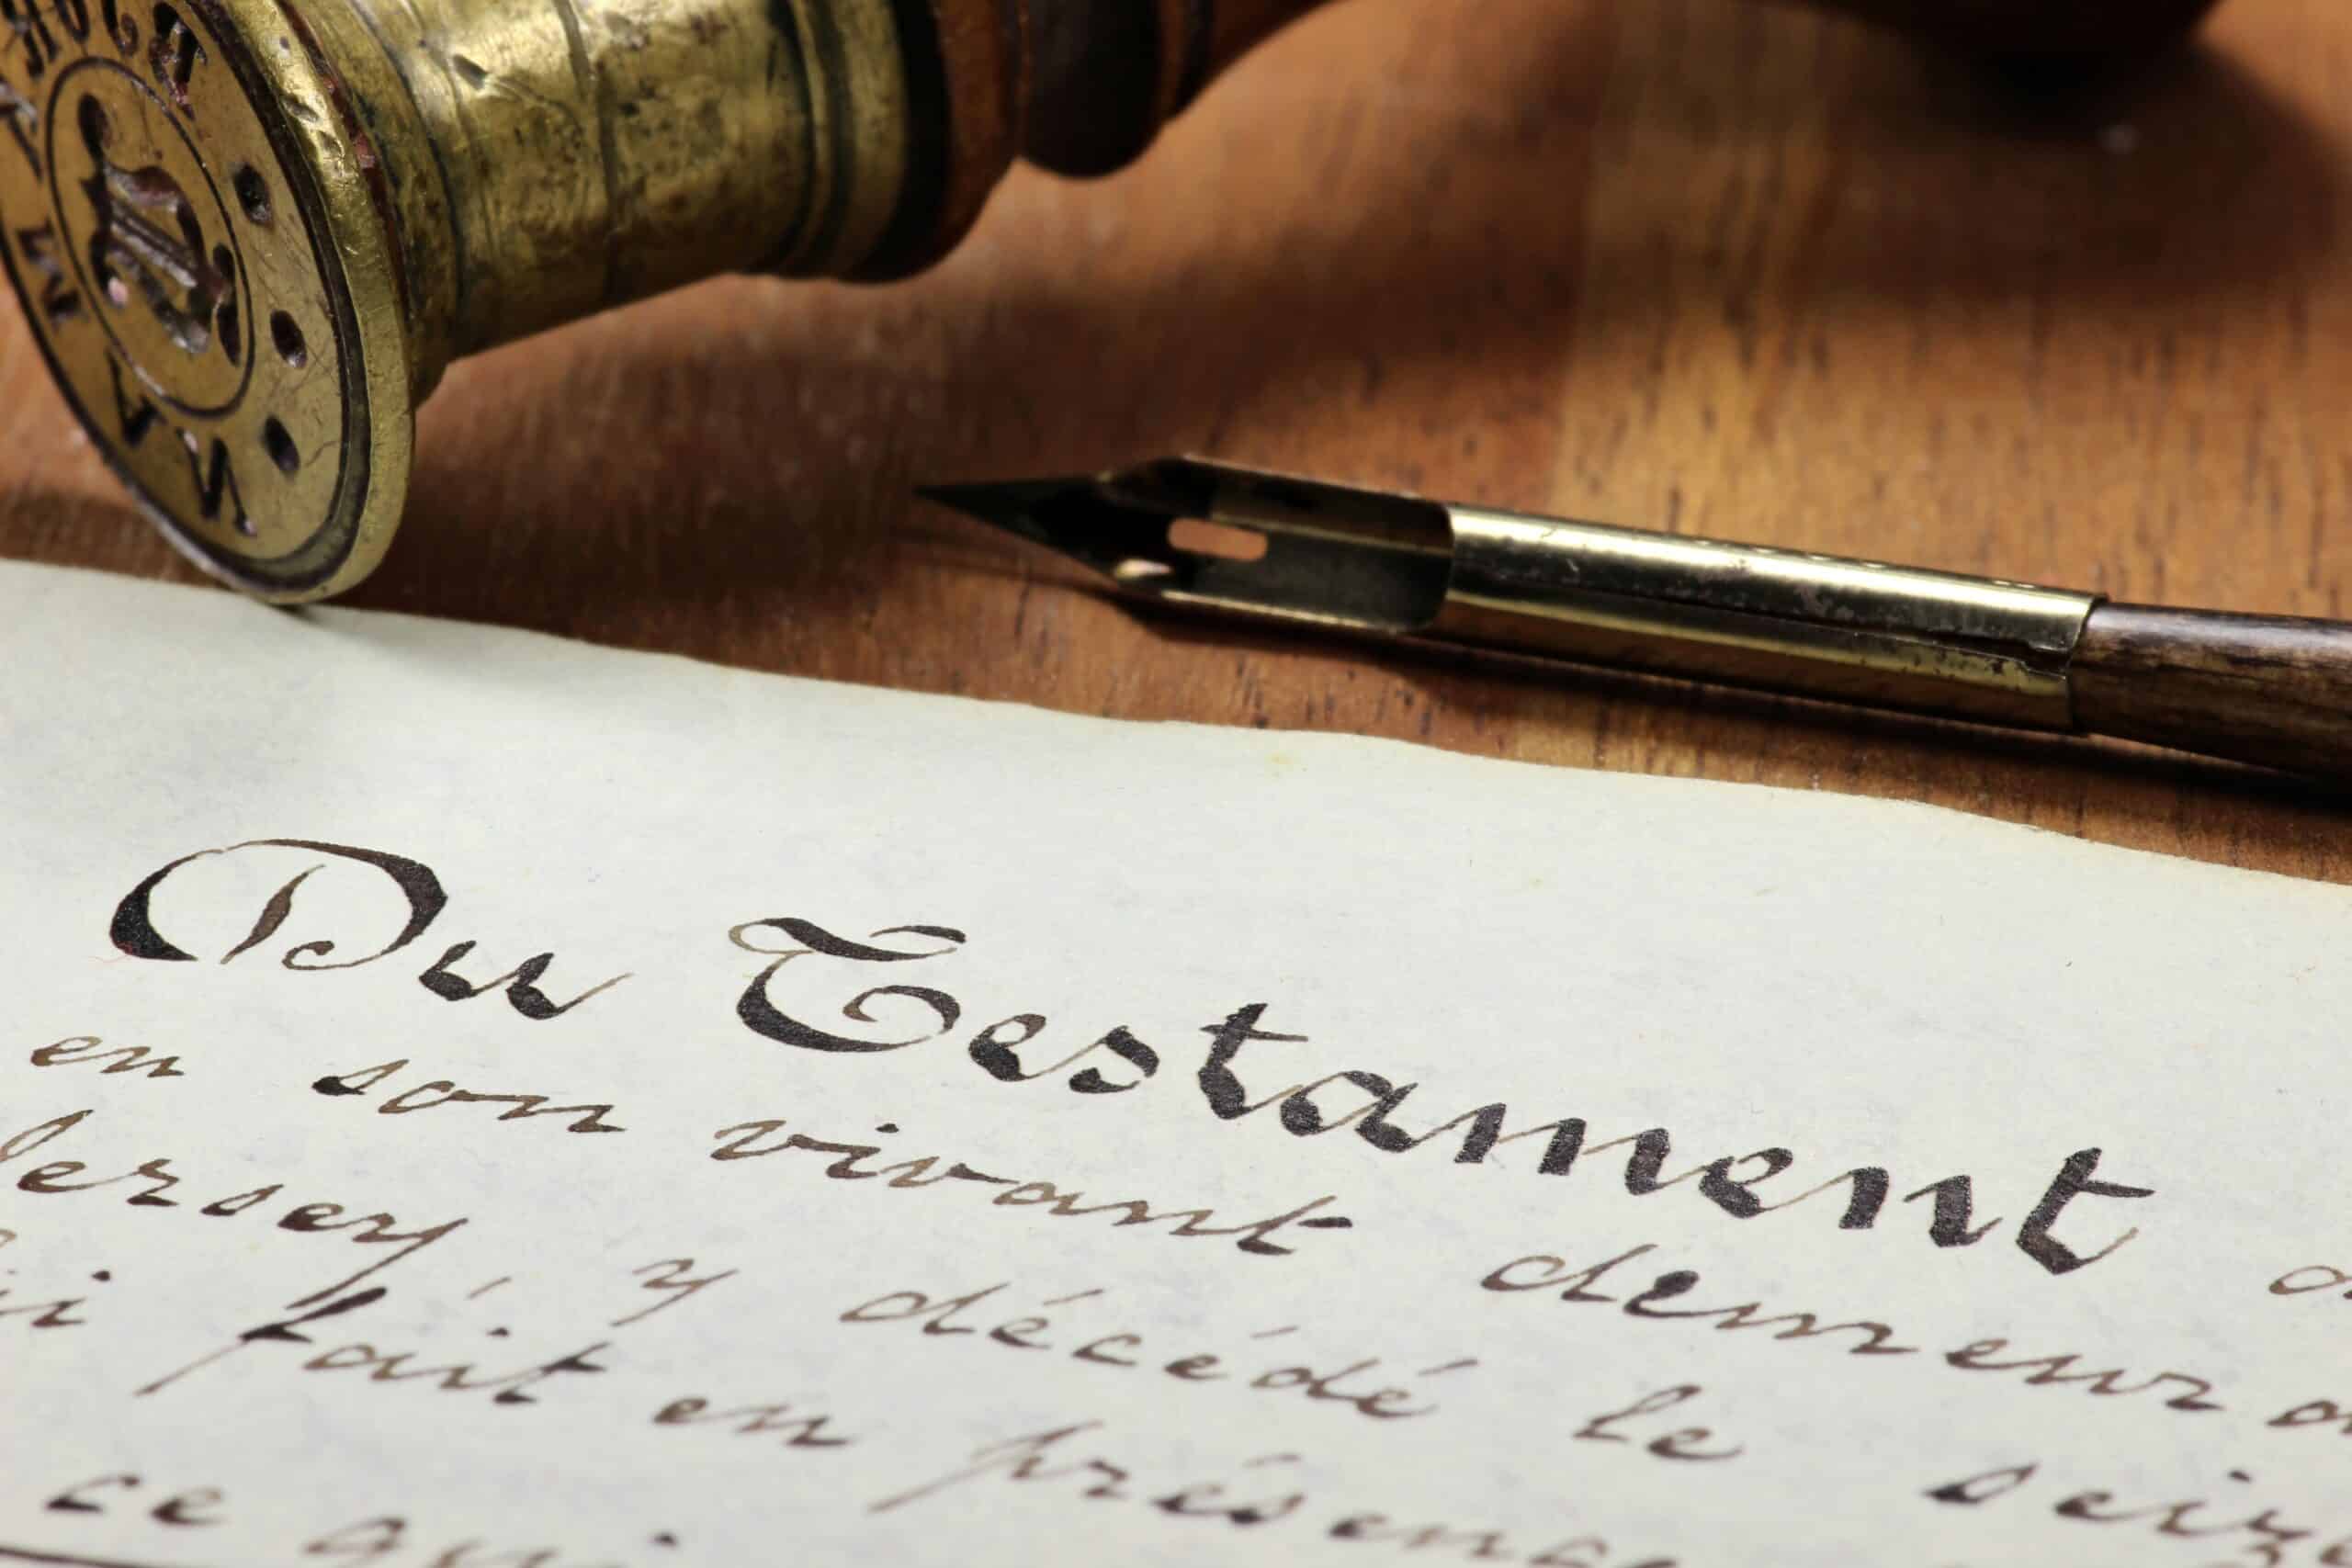 Du Testament
en son vivant demeura
Jersey y décédé le seize
fait en présence
ce qui